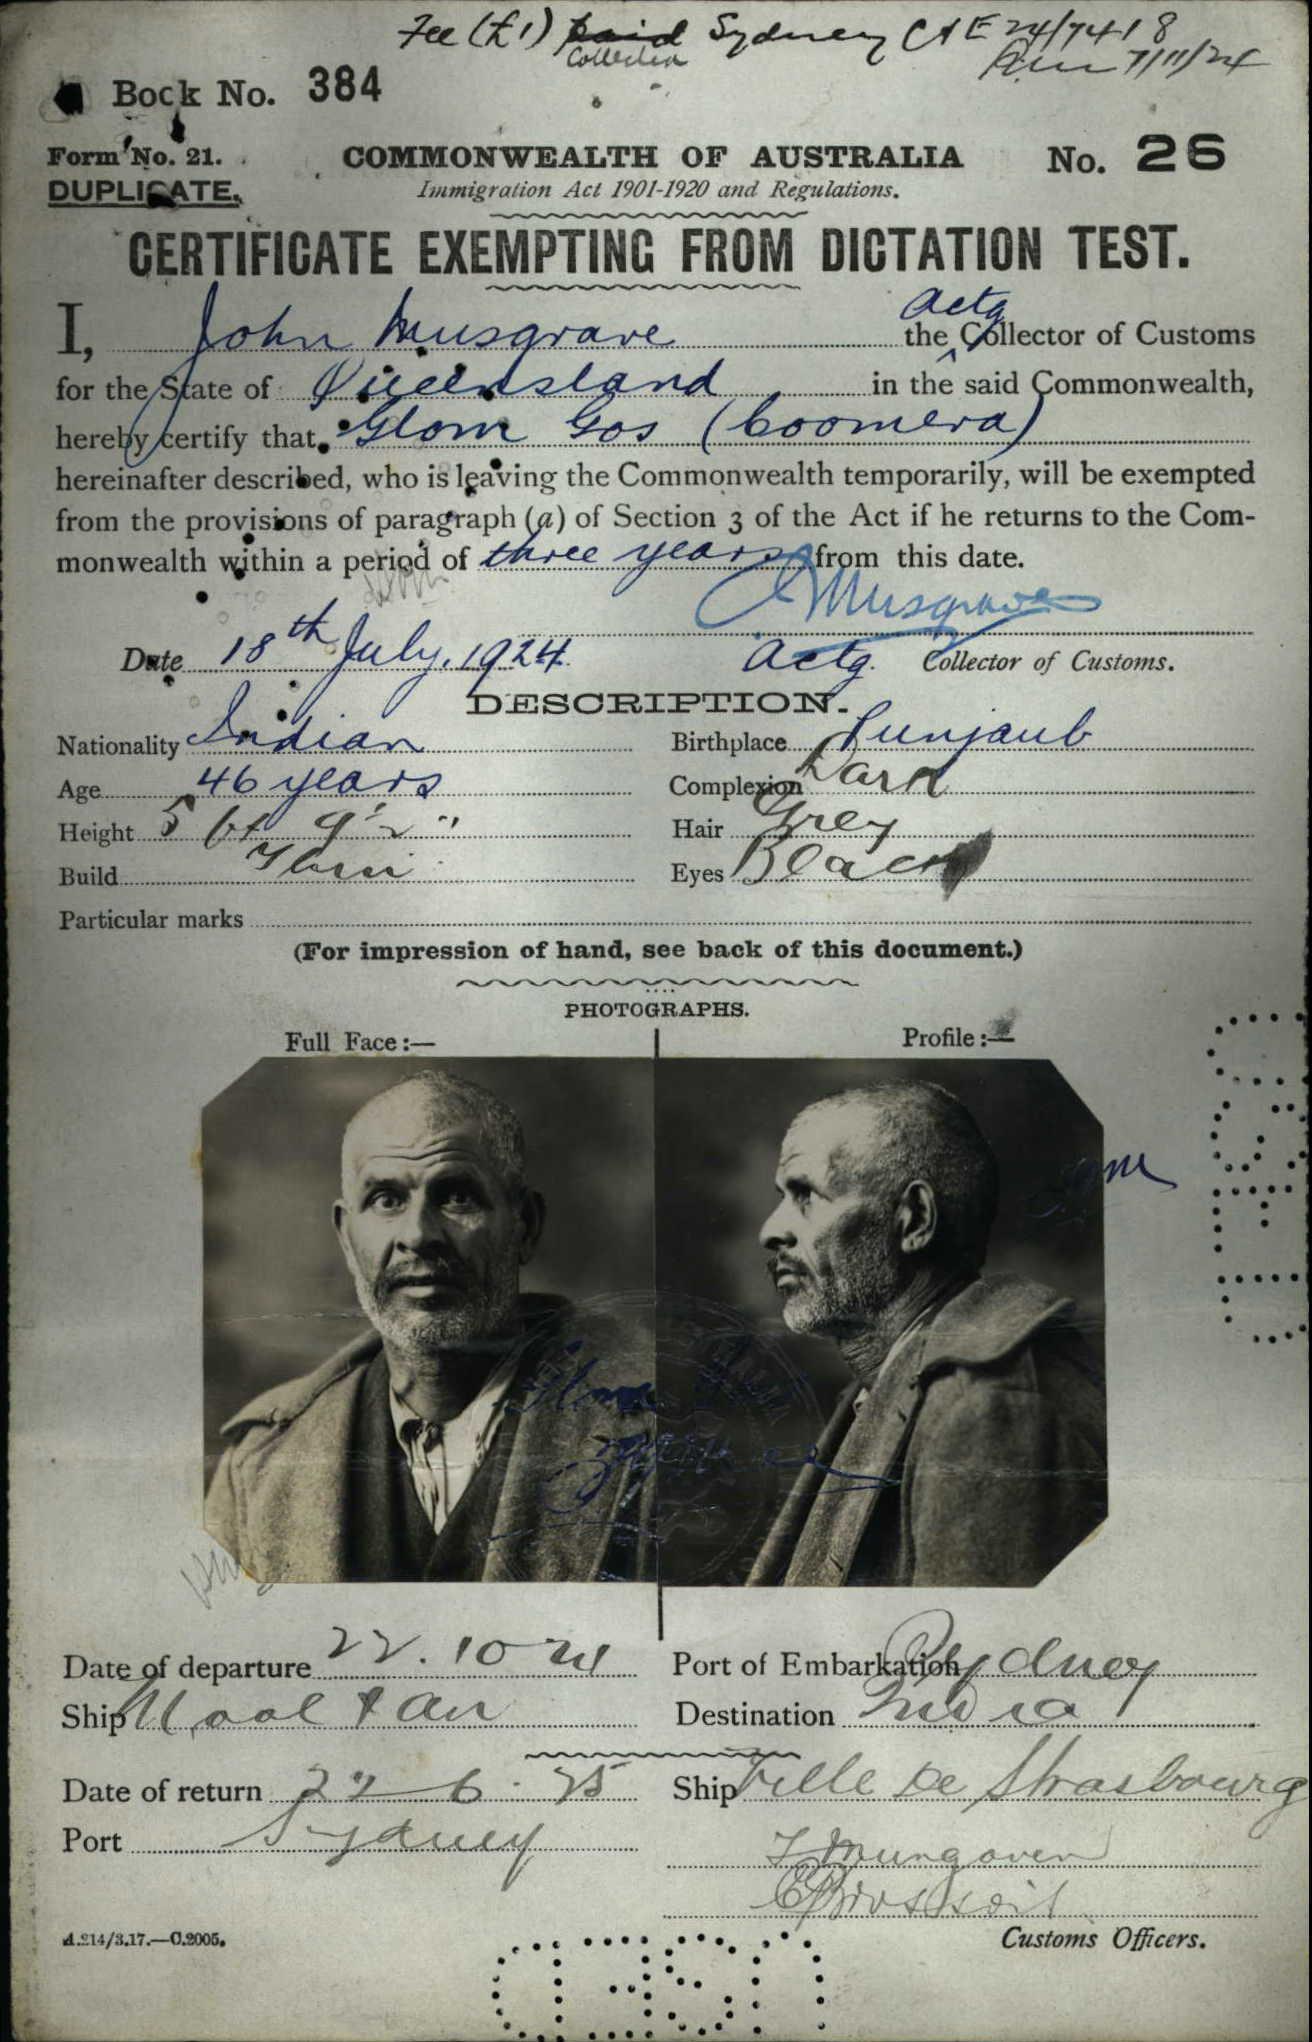 Fee (£1) paid Sydney C & E 24/7418
Collected
7/11/24
Book No. 384
Form No. 21.
COMMONWEALTH OF AUSTRALIA
No. 26
DUPLICATE.
Immigration Act 1901-1920 and Regulations.
CERTIFICATE EXEMPTING FROM DICTATION TEST.
actg
I, John Musgrave the Collector of Customs
for the State of Queensland in the said Commonwealth,
hereby certify that Glom Gos (Coomera)
hereinafter described, who is leaving the Commonwealth temporarily, will be exempted
from the provisions of paragraph (a) of Section 3 of the Act if he returns to the Com-
monwealth within a period of three years from this date.
Musgrave
Date 18th July, 1924
Actg. Collector of Customs.
DESCRIPTION.
Nationality Indian
Birthplace Punjaub
Age 46 years
Complexion Dark
Height 5 ft 9½"
Hair Grey
Build Thin
Eyes Black
Particular marks
(For impression of hand, see back of this document.)
PHOTOGRAPHS.
Full Face:—
Profile:—
Date of departure 22.10 24
Port of Embarkation Sydney
Ship Mooltan
Destination India
Date of return 22-6-25
Ship Ville De Strasbourg
Port Sydney
Mungoven
A.214/3.17.—C.2005.
Customs Officers.
USED